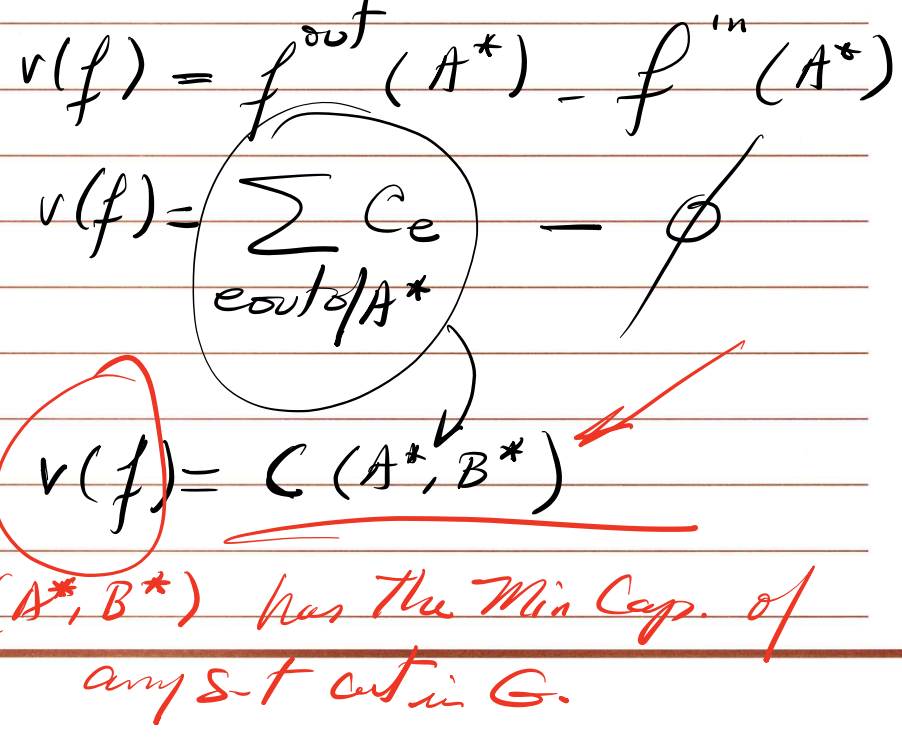 v(f) = f^out (A*) - f^in (A*)
v(f) = Σ Ce - ϕ
e out of A*
v(f) = C (A*, B*)
(A*, B*) has the Min Cap. of
any s-t cut in G.